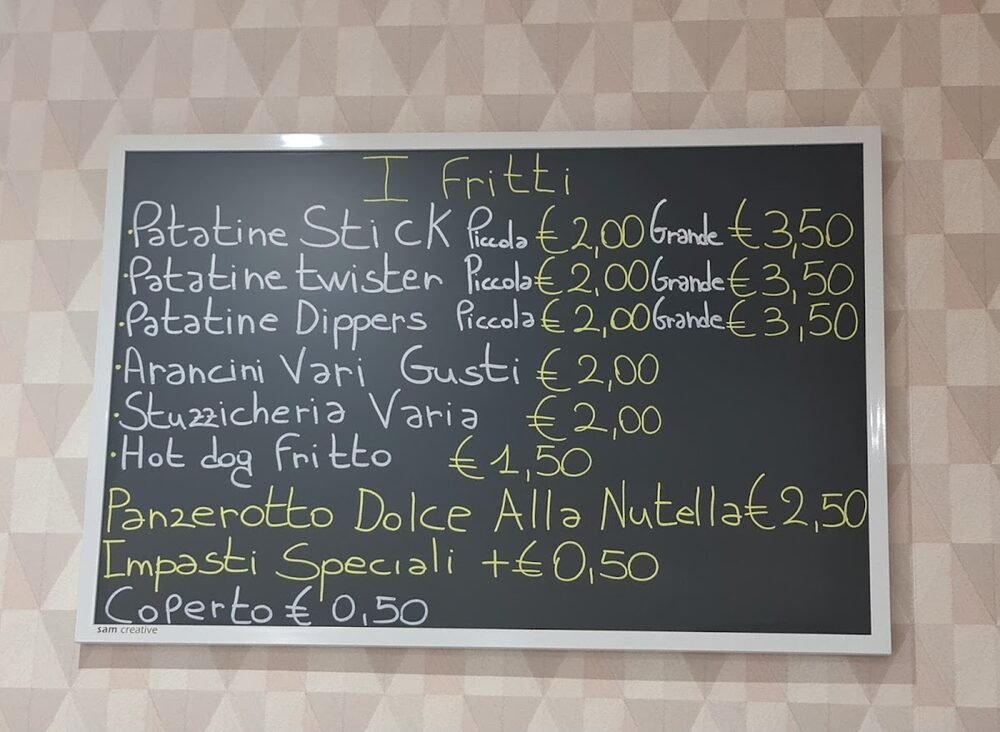 I Fritti
·Patatine Stick Piccola €2,00 Grande €3,50
·Patatine twister Piccola €2,00 Grande €3,50
·Patatine Dippers Piccola €2,00 Grande €3,50
·Arancini Vari Gusti €2,00
·Stuzzicheria Varia €2,00
·Hot dog Fritto €1,50
Panzerotto Dolce Alla Nutella €2,50
Impasti Speciali +€0,50
Coperto € 0,50
sam creative